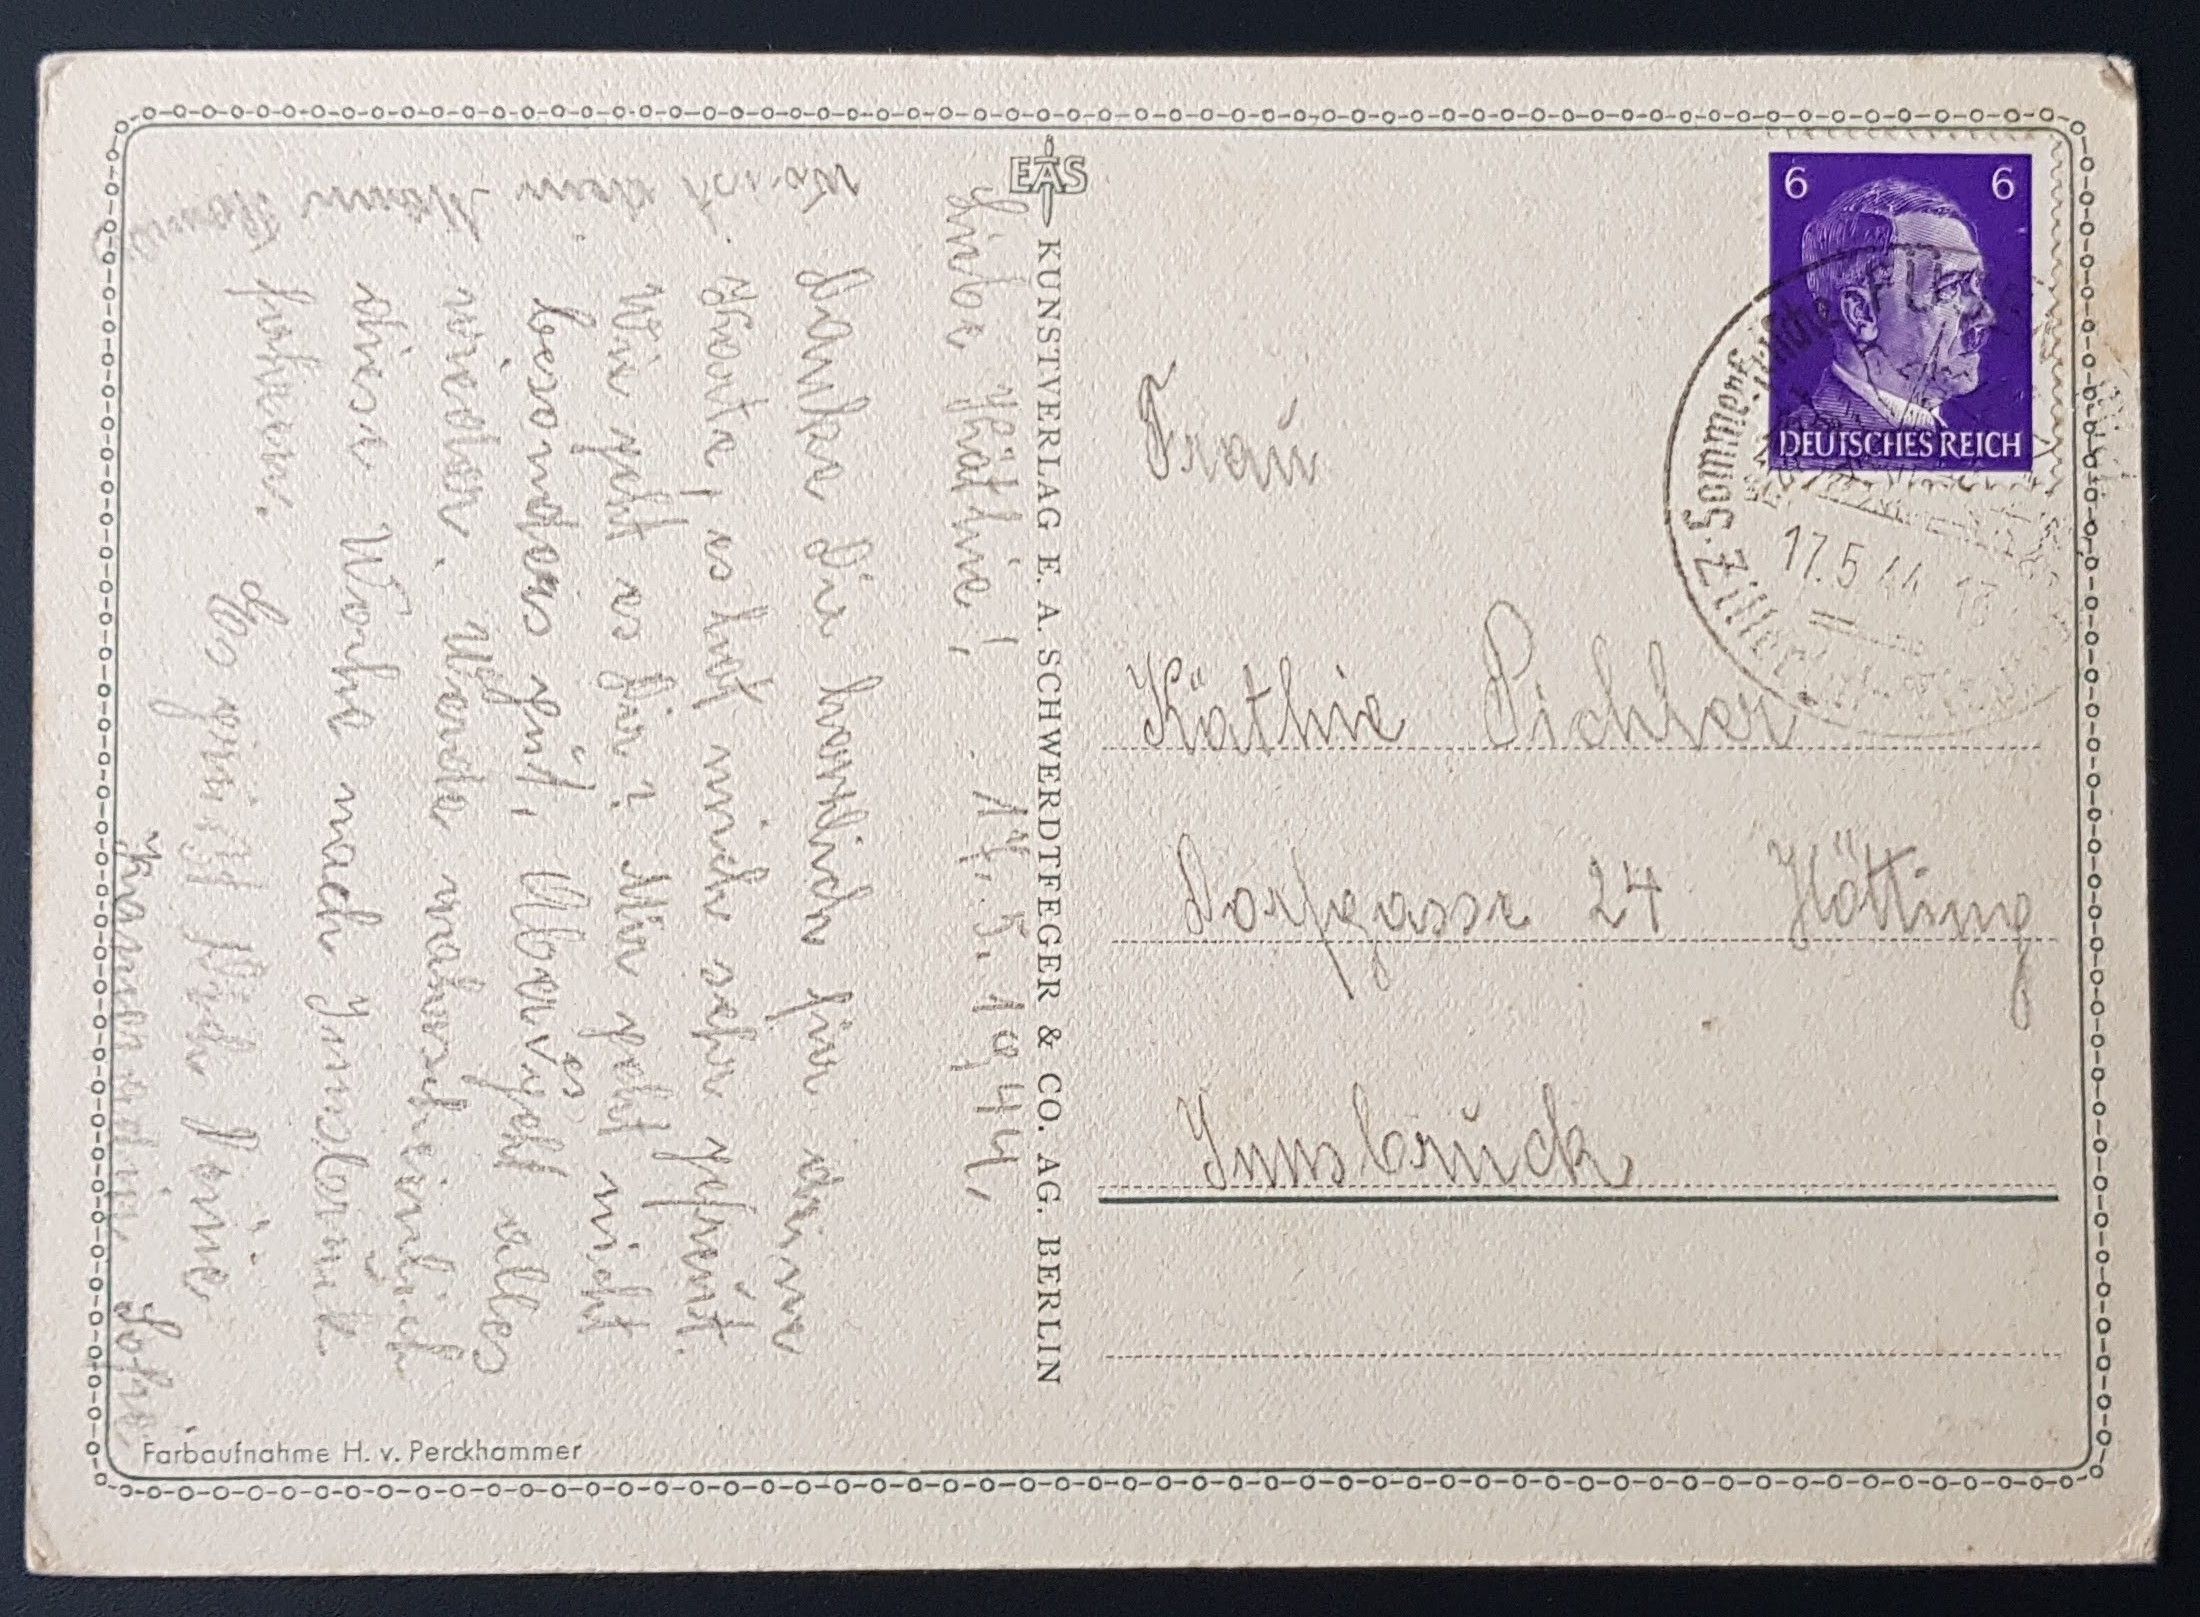 Liebe Käthie! 17.5.1944.
Danke Dir herzlich für deine
Karte, es hat mich sehr gefreut.
Wie geht es Dir? Mir geht nicht
besonders gut,
alles
wieder. Werde wahrscheinlich
diese Woche nach Innsbruck
fahren.
Es grüßt Dich Deine
Wo ist dein Mann
EAS
KUNSTVERLAG E. A. SCHWERDTFEGER & CO. AG. BERLIN
Farbaufnahme H. v. Perckhammer
6 6
DEUTSCHES REICH
17.5.44
Frau
Käthie Pichler
Dorfgasse 24 Hötting
Innsbruck